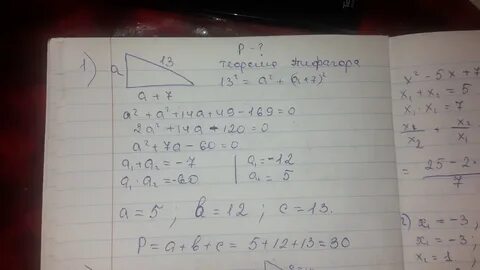 P - ?
1)
a
13
a + 7
теорема Пифагора
13² = a² + (a+7)²
a² + a² + 14a + 49 - 169 = 0
2a² + 14a - 120 = 0
a² + 7a - 60 = 0
a₁ + a₂ = -7 | a₁ = -12
a₁ · a₂ = -60 | a₂ = 5
a = 5 ; b = 12 ; c = 13.
P = a + b + c = 5 + 12 + 13 = 30
x² - 5x + 7
x₁ + x₂ = 5
x₁ · x₂ = 7
x₁/x₂ + x₂/x₁
= 25 - 2 ·/7
2) x₁ = -3,
x₁ = -3,
x₂ = 1,